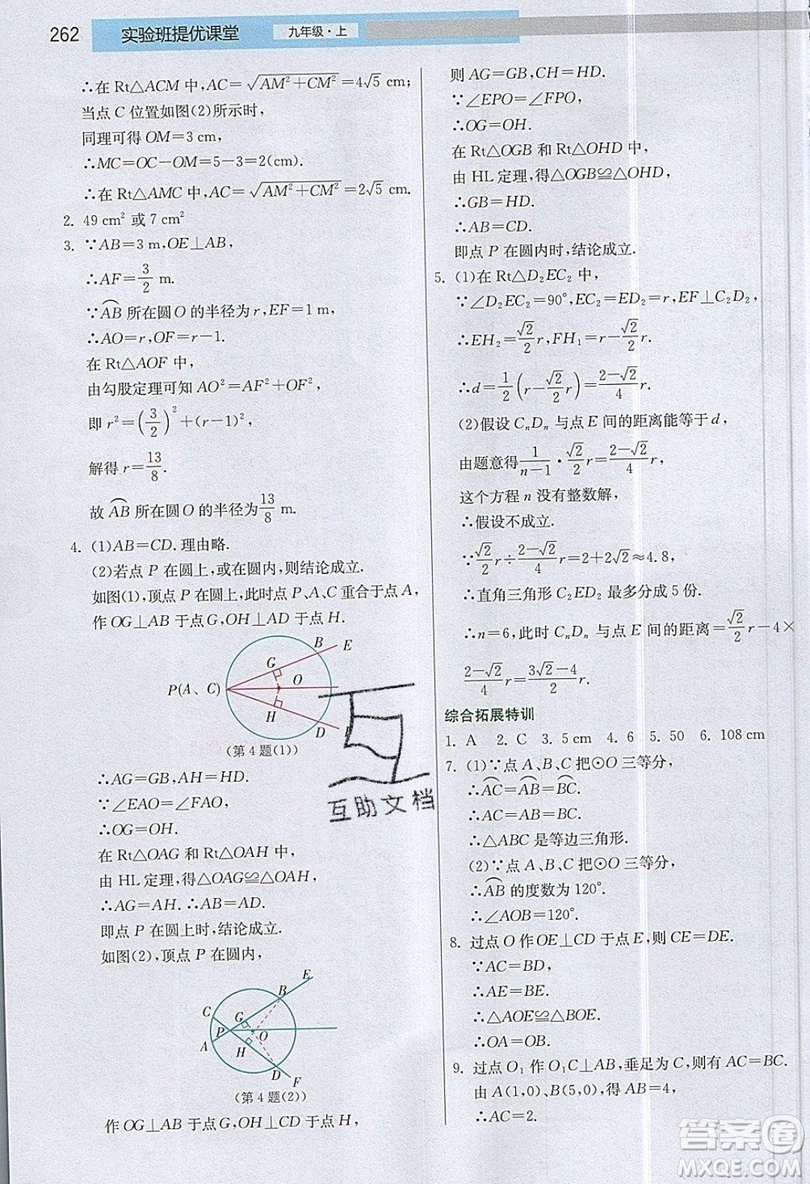 262 实验班提优课堂 九年级·上
∴在 Rt△ACM 中,AC=√(AM²+CM²)=4√5 cm;
当点 C 位置如图(2)所示时,
同理可得 OM=3 cm,
∴MC=OC-OM=5-3=2(cm).
∴在 Rt△AMC 中,AC=√(AM²+CM²)=2√5 cm.
2. 49 cm² 或 7 cm²
3. ∵AB=3 m,OE⊥AB,
∴AF=3/2 m.
∵⌒AB 所在圆O 的半径为 r,EF=1 m,
∴AO=r,OF=r-1.
在 Rt△AOF 中,
由勾股定理可知 AO²=AF²+OF²,
即 r²=(3/2)²+(r-1)².
解得 r=13/8.
故 ⌒AB 所在圆O 的半径为13/8 m.
4. (1)AB=CD. 理由略.
(2)若点 P 在圆上,或在圆内,则结论成立.
如图(1),顶点 P 在圆上,此时点 P、A、C 重合于点 A,
作 OG⊥AB 于点 G,OH⊥AD 于点 H.
B E
G
P(A、C) O
H
D
(第 4 题(1))
∴AG=GB,AH=HD.
∵∠EAO=∠FAO,
∴OG=OH.
在 Rt△OAG 和 Rt△OAH 中,
由 HL 定理,得△OAG≌△OAH,
∴AG=AH. ∴AB=AD.
即点 P 在圆上时,结论成立.
如图(2),顶点 P 在圆内,
E
B
C G
P O
A H
D F
(第 4 题(2))
作 OG⊥AB 于点 G,OH⊥CD 于点 H,
则 AG=GB,CH=HD.
∵∠EPO=∠FPO,
∴OG=OH.
在 Rt△OGB 和 Rt△OHD 中,
由 HL 定理,得△OGB≌△OHD,
∴GB=HD.
∴AB=CD.
即点 P 在圆内时,结论成立.
5. (1)在 Rt△D₂EC₂ 中,
∵∠D₂EC₂=90°,EC₂=ED₂=r,EF⊥C₂D₂,
∴EH₂=√2/2 r,FH₁=r-√2/2 r.
∴d=1/2(r-√2/2 r)=(2-√2)/4 r.
(2)假设 CₙDₙ 与点 E 间的距离能等于 d,
由题意得1/(n-1)·√2/2 r=(2-√2)/4 r,
这个方程 n 没有整数解,
∴假设不成立.
∵√2/2 r÷(2-√2)/4 r=2+2√2≈4.8,
∴直角三角形 C₂ED₂ 最多分成 5 份.
∴n=6,此时 CₙDₙ 与点 E 间的距离=√2/2 r-4×
(2-√2)/4 r=(3√2-4)/2 r.
综合拓展特训
1. A 2. C 3. 5 cm 4. 6 5. 50 6. 108 cm
7. (1)∵点 A、B、C 把⊙O 三等分,
∴⌒AC=⌒AB=⌒BC.
∴AC=AB=BC.
∴△ABC 是等边三角形.
(2)∵点 A、B、C 把⊙O 三等分,
∴⌒AB的度数为 120°.
∴∠AOB=120°.
8. 过点 O 作 OE⊥CD 于点 E,则 CE=DE.
∵AC=BD,
∴AE=BE.
∴△AOE≌△BOE.
∴OA=OB.
9. 过点 O₁ 作 O₁C⊥AB,垂足为 C,则有 AC=BC.
由 A(1,0)、B(5,0),得 AB=4,
∴AC=2.
互助文档
答案圈
MXQE.COM